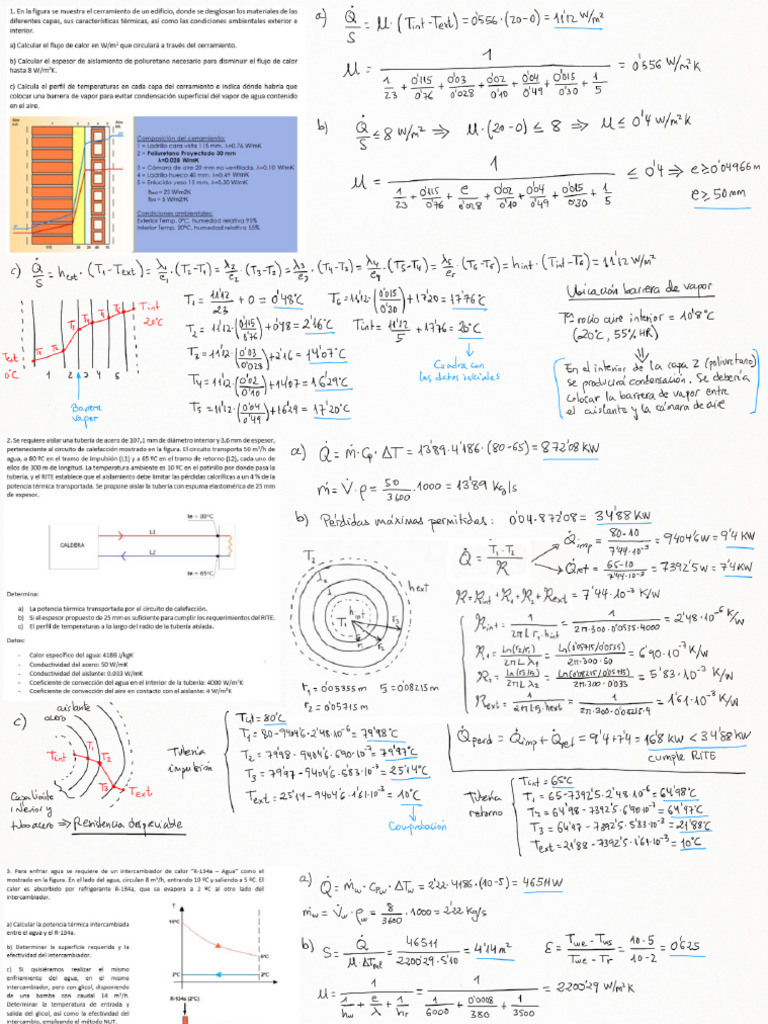 1. En la figura se muestra el cerramiento de un edificio, donde se desglosan los materiales de las
diferentes capas, sus características térmicas, así como las condiciones ambientales exterior e
interior.
a) Calcular el flujo de calor en W/m² que circulará a través del cerramiento.
b) Calcular el espesor de aislamiento de poliuretano necesario para disminuir el flujo de calor
hasta 8 W/m²K.
c) Calcula el perfil de temperaturas en cada capa del cerramiento e indica dónde habría que
colocar una barrera de vapor para evitar condensación superficial del vapor de agua contenido
en el aire.
Composición del cerramiento:
1 = Ladrillo cara vista 115 mm, λ=0,76 W/mK
2 = Poliuretano Proyectado 30 mm
λ=0,028 W/mK
3 = Cámara de aire 20 mm no ventilada, λ=0,10 W/mK
4 = Ladrillo hueco 40 mm, λ=0,49 W/mK
5 = Enlucido yeso 15 mm, λ=0,30 W/mK
= 23 W/m2K
= 5 W/m2K
Condiciones ambientales:
Exterior Temp. 0ºC, humedad relativa 95%
Interior Temp. 20ºC, humedad relativa 55%
a) Q̇/S = U·(Tint-Text) = 0'556·(20-0) = 11'12 W/m²
U = 1 / (1/23 + 0'115/0'76 + 0'03/0'028 + 0'02/0'10 + 0'04/0'49 + 0'015/0'30 + 1/5) = 0'556 W/m²K
b) Q̇/S ≤ 8 W/m² ⇒ U·(20-0) ≤ 8 ⇒ U ≤ 0'4 W/m²K
U = 1 / (1/23 + 0'115/0'76 + e/0'028 + 0'02/0'10 + 0'04/0'49 + 0'015/0'30 + 1/5) ≤ 0'4 ⇒ e ≥ 0'04966 m
e ≥ 50 mm
c) Q̇/S = hext·(T1-Text) = λ1/e1·(T2-T1) = λ2/e2·(T3-T2) = λ3/e3·(T4-T3) = λ4/e4·(T5-T4) = λ5/e5·(T6-T5) = hint·(Tint-T6) = 11'12 W/m²
Text
0ºC
T1 T2 T3 T4 T5 T6
Tint
20ºC
1 2 3 4 5
Barrera
vapor
T1 = 11'12/23 + 0 = 0'48ºC
T2 = 11'12·(0'115/0'76) + 0'48 = 2'16ºC
T3 = 11'12·(0'03/0'028) + 2'16 = 14'07ºC
T4 = 11'12·(0'02/0'10) + 14'07 = 16'29ºC
T5 = 11'12·(0'04/0'49) + 16'29 = 17'20ºC
T6 = 11'12·(0'015/0'30) + 17'20 = 17'76ºC
Tint = 11'12/5 + 17'76 = 20ºC
Cuadra con
los datos iniciales
Ubicación barrera de vapor
Tª rocío aire interior = 10'8ºC
(20ºC, 55% HR)
En el interior de la capa 2 (poliuretano)
se producirá condensación. Se debería
colocar la barrera de vapor entre
el aislante y la cámara de aire
2. Se requiere aislar una tubería de acero de 107,1 mm de diámetro interior y 3,6 mm de espesor,
perteneciente al circuito de calefacción mostrado en la figura. El circuito transporta 50 m³/h de
agua, a 80 ºC en el tramo de impulsión (L1) y a 65 ºC en el tramo de retorno (L2), cada uno de
ellos de 300 m de longitud. La temperatura ambiente es 10 ºC en el patinillo por donde pasa la
tubería, y el RITE establece que el aislamiento debe limitar las pérdidas caloríficas a un 4 % de la
potencia térmica transportada. Se propone aislar la tubería con espuma elastomérica de 25 mm
de espesor.
CALDERA
L1
L2
te = 80ºC
te = 65ºC
Determina:
a) La potencia térmica transportada por el circuito de calefacción.
b) Si el espesor propuesto de 25 mm es suficiente para cumplir los requerimientos del RITE.
c) El perfil de temperaturas a lo largo del radio de la tubería aislada.
Datos:
- Calor específico del agua: 4186 J/kgK
- Conductividad del acero: 50 W/mK
- Conductividad del aislante: 0.033 W/mK
- Coeficiente de convección del agua en el interior de la tubería: 4000 W/m²K
- Coeficiente de convección del aire en contacto con el aislante: 4 W/m²K
a) Q̇ = ṁ·Cp·ΔT = 13'89·4'186·(80-65) = 872'08 KW
ṁ = V̇·ρ = 50/3600·1000 = 13'89 Kg/s
b) Pérdidas máximas permitidas: 0'04·872'08 = 34'88 KW
Q̇ = T1-T2/R
Q̇imp = 80-10/7'44·10⁻³ = 9404'6 W = 9'4 KW
Q̇ret = 65-10/7'44·10⁻³ = 7392'5 W = 7'4 KW
R = Rint + R1 + R2 + Rext = 7'44·10⁻³ K/W
Rint = 1/2πL r1·hint = 1/2π·300·0'0535·4000 = 2'48·10⁻⁶ K/W
R1 = Ln(r2/r1)/2πLλ1 = Ln(0'05715/0'0535)/2π·300·50 = 6'90·10⁻⁷ K/W
R2 = Ln(r3/r2)/2πLλ2 = Ln(0'08215/0'05715)/2π·300·0'033 = 5'83·10⁻³ K/W
Rext = 1/2πL r3·hext = 1/2π·300·0'08215·4 = 1'61·10⁻³ K/W
T2
hext
hint
T1
r1
r2
r3
r1 = 0'05355 m r3 = 0'08215 m
r2 = 0'05715 m
Q̇perd = Q̇imp + Q̇ret = 9'4+7'4 = 16'8 KW < 34'88 KW
cumple RITE
c)
aislante
acero
Tint
T1
T2
T3
Text
Capa límite
interior y
tubo acero ⇒ Resistencia despreciable
Tubería
impulsión
Tint = 80ºC
T1 = 80-9404'6·2'48·10⁻⁶ = 79'98ºC
T2 = 79'98-9404'6·6'90·10⁻⁷ = 79'97ºC
T3 = 79'97-9404'6·5'83·10⁻³ = 25'14ºC
Text = 25'14-9404'6·1'61·10⁻³ = 10ºC
Comprobación
Tubería
retorno
Tint = 65ºC
T1 = 65-7392'5·2'48·10⁻⁶ = 64'98ºC
T2 = 64'98-7392'5·6'90·10⁻⁷ = 64'97ºC
T3 = 64'97-7392'5·5'83·10⁻³ = 21'88ºC
Text = 21'88-7392'5·1'61·10⁻³ = 10ºC
3. Para enfriar agua se requiere de un intercambiador de calor "R-134a – Agua" como el
mostrado en la figura. En el lado del agua, circulan 8 m³/h, entrando 10 ºC y saliendo a 5 ºC. El
calor es absorbido por refrigerante R-134a, que se evapora a 2 ºC al otro lado del
intercambiador.
a) Calcular la potencia térmica intercambiada
entre el agua y el R-134a.
b) Determinar la superficie requerida y la
efectividad del intercambiador.
c) Si quisiéramos realizar el mismo
enfriamiento del agua, en el mismo
intercambiador, pero con glicol, disponiendo
de una bomba con caudal 14 m³/h.
Determinar la temperatura de entrada y
salida del glicol, así como la efectividad del
intercambiador, empleando el método NUT.
T
10ºC
5ºC
2ºC
2ºC
R-134a (2ºC)
a) Q̇ = ṁw·Cpw·ΔTw = 2'22·4186·(10-5) = 46511 W
ṁw = V̇w·ρw = 8/3600·1000 = 2'22 Kg/s
b) S = Q̇/U·ΔTml = 46511/2200'29·5'10 = 4'14 m²
ε = Twe-Tws/Twe-Tr = 10-5/10-2 = 0'625
U = 1 / (1/hw + e/λ + 1/hr) = 1 / (1/6000 + 0'0008/380 + 1/3500) = 2200'29 W/m²K